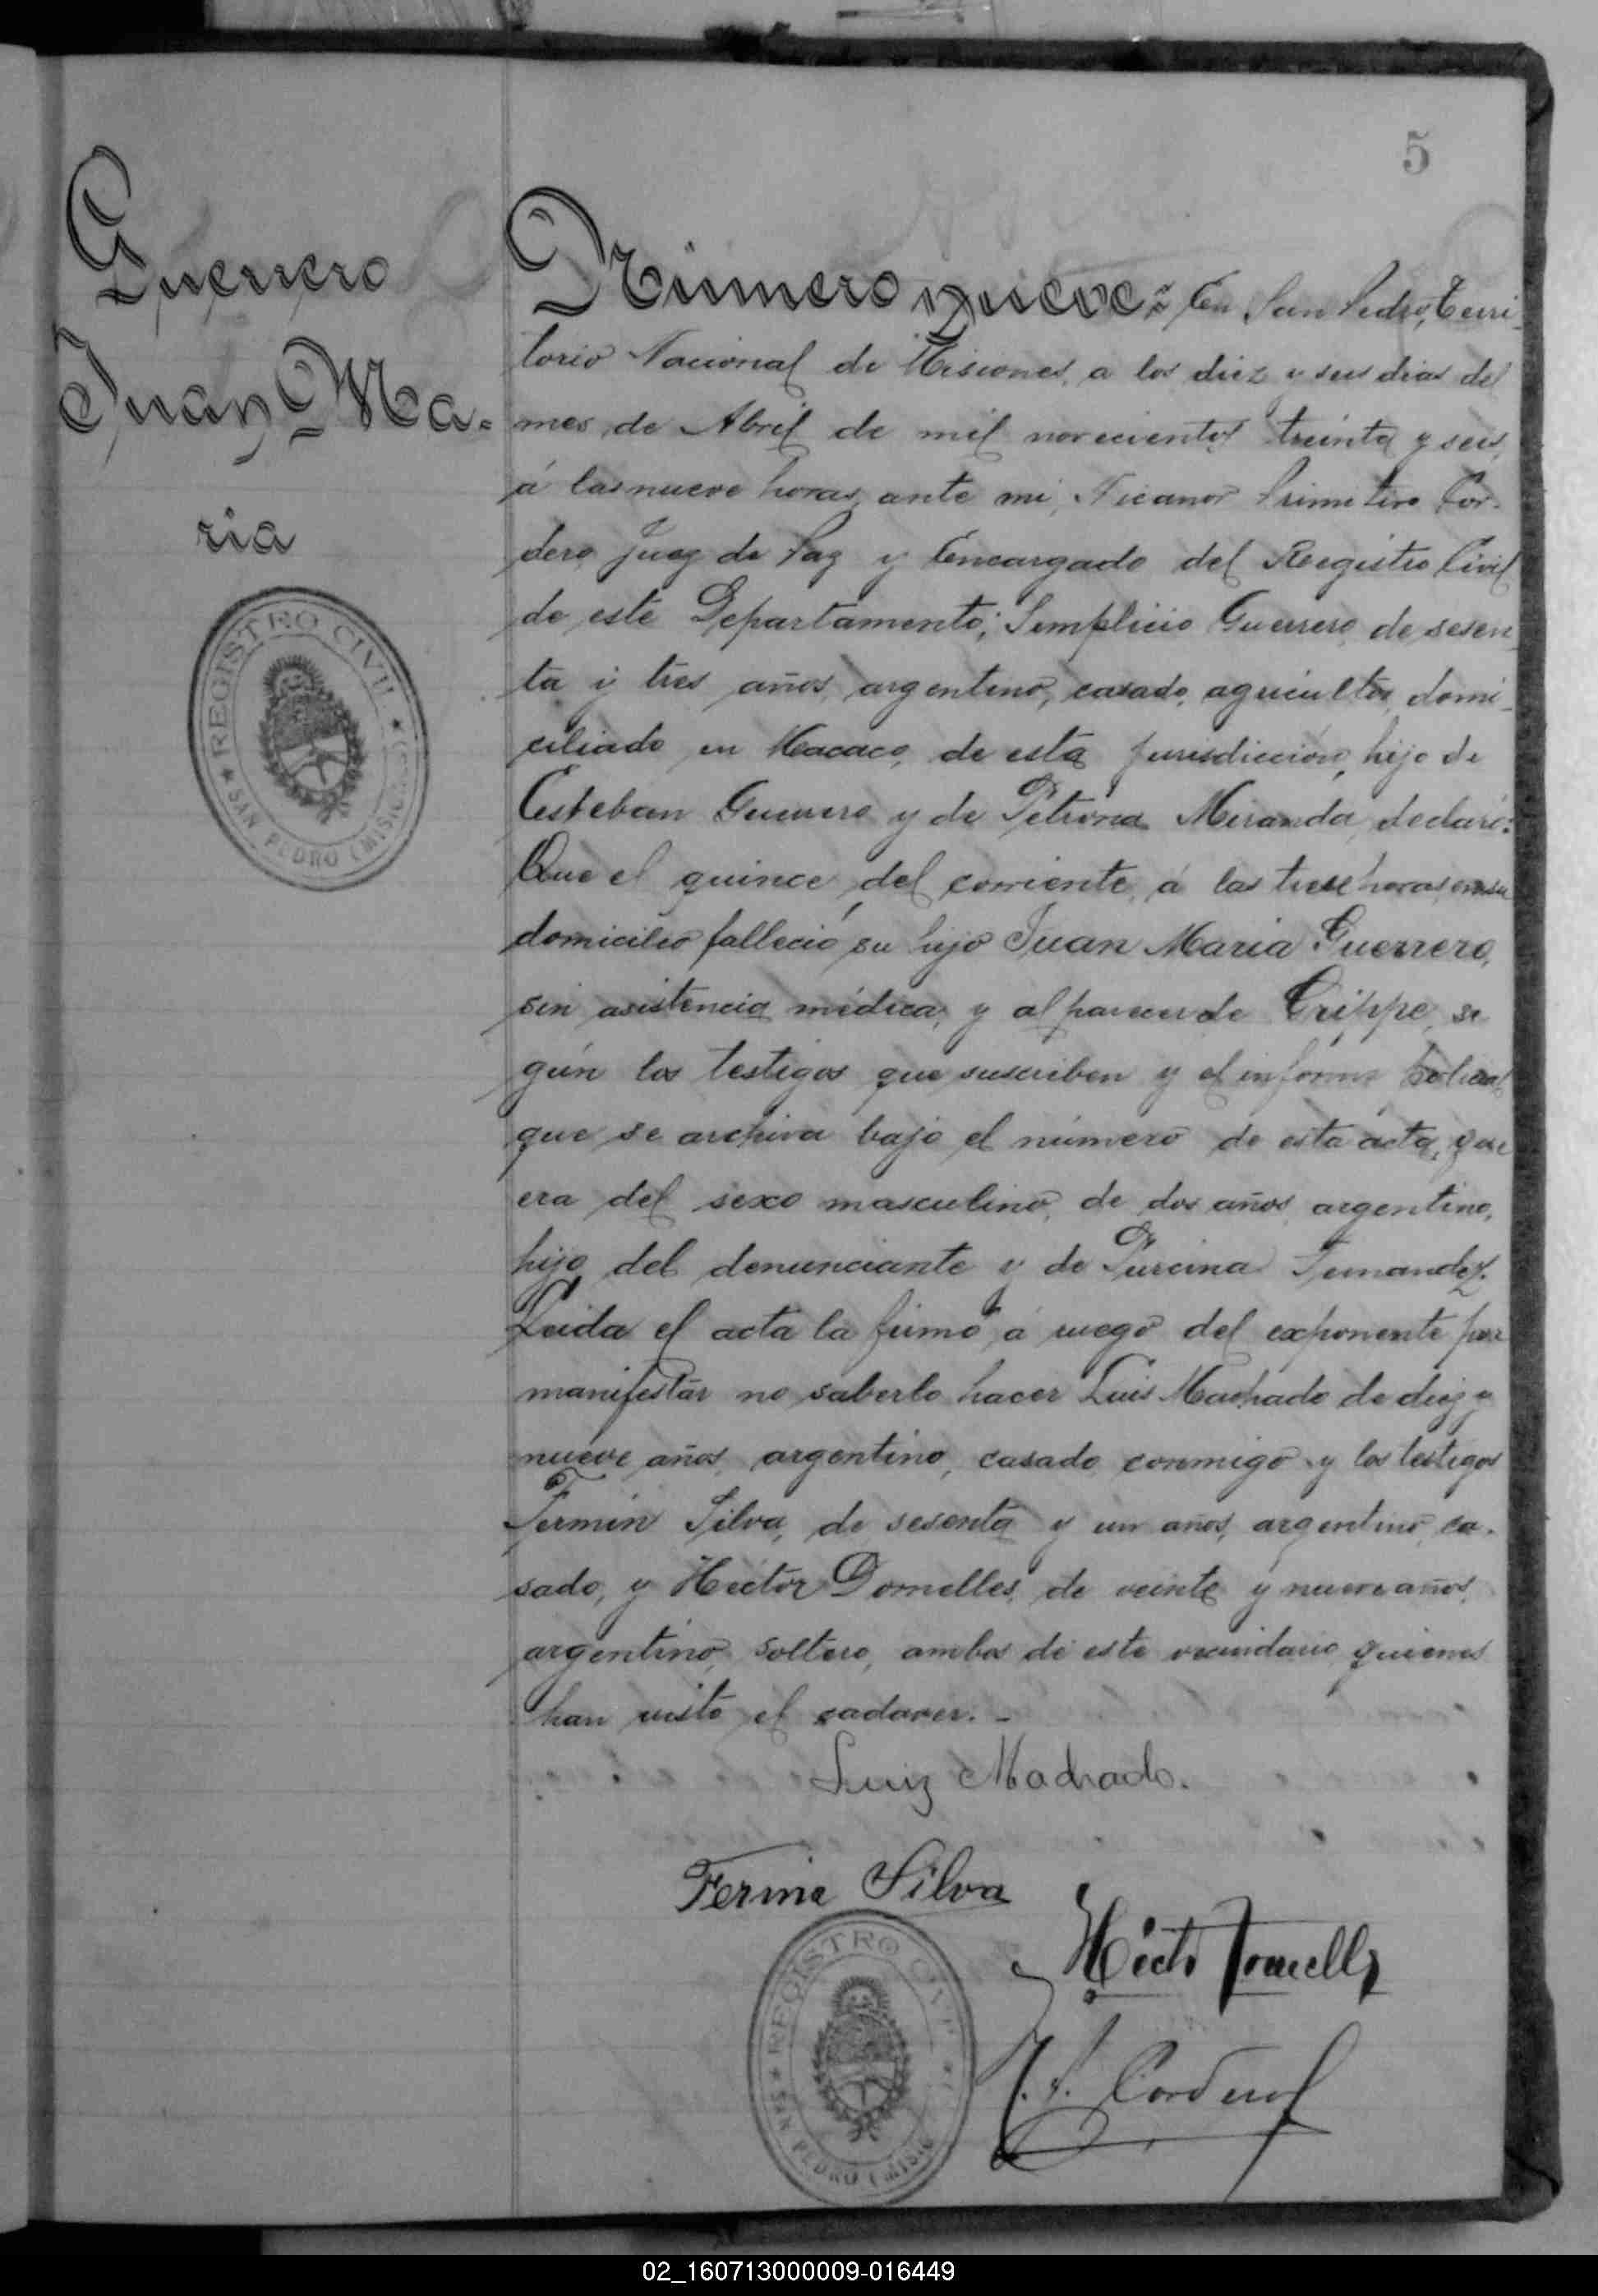 5
Guerrero
Juan Ma-
ria
REGISTRO CIVIL
SAN PEDRO (MISIO
Número nueve: En San Pedro, Terri-
torio Nacional de Misiones, a los diez y seis dias del
mes de Abril de mil novecientos treinta y seis,
á las nueve horas, ante mi, Nicanor Primitivo Cor-
dero, Juez de Paz y Encargado del Registro Civil
de este Departamento; Simplicio Guerrero, de sesen-
ta y tres años, argentino, casado, agricultor, domi-
ciliado en Macaco, de esta jurisdicción, hijo de
Esteban Guerrero y de Petrona Miranda, declaró:
Que el quince del corriente, á las horas, en su
domicilio falleció su hijo Juan Maria Guerrero,
sin asistencia médica, y al parecer de Grippe, se
gún los testigos que suscriben y el informe Policial
que se archiva bajo el número de esta acta, que
era del sexo masculino, de dos años, argentino,
hijo del denunciante y de Purcina Fernandez.
Leida el acta la firmó, á ruego del exponente por
manifestar no saberlo hacer Luis Machado de diez y
nueve años, argentino, casado, conmigo y los testigos
Fermin Silva, de sesenta y un años, argentino, ca-
sado, y Hector Dornelles, de veinte y nueve años,
argentino, soltero, ambos de este vecindario, quienes
han visto el cadaver. -
Luiz Machado.
Fermin Silva
Hecto Dornelles
N. P. Cordero
REGISTRO CIVIL
SAN PEDRO (MISIO
02_160713000009-016449